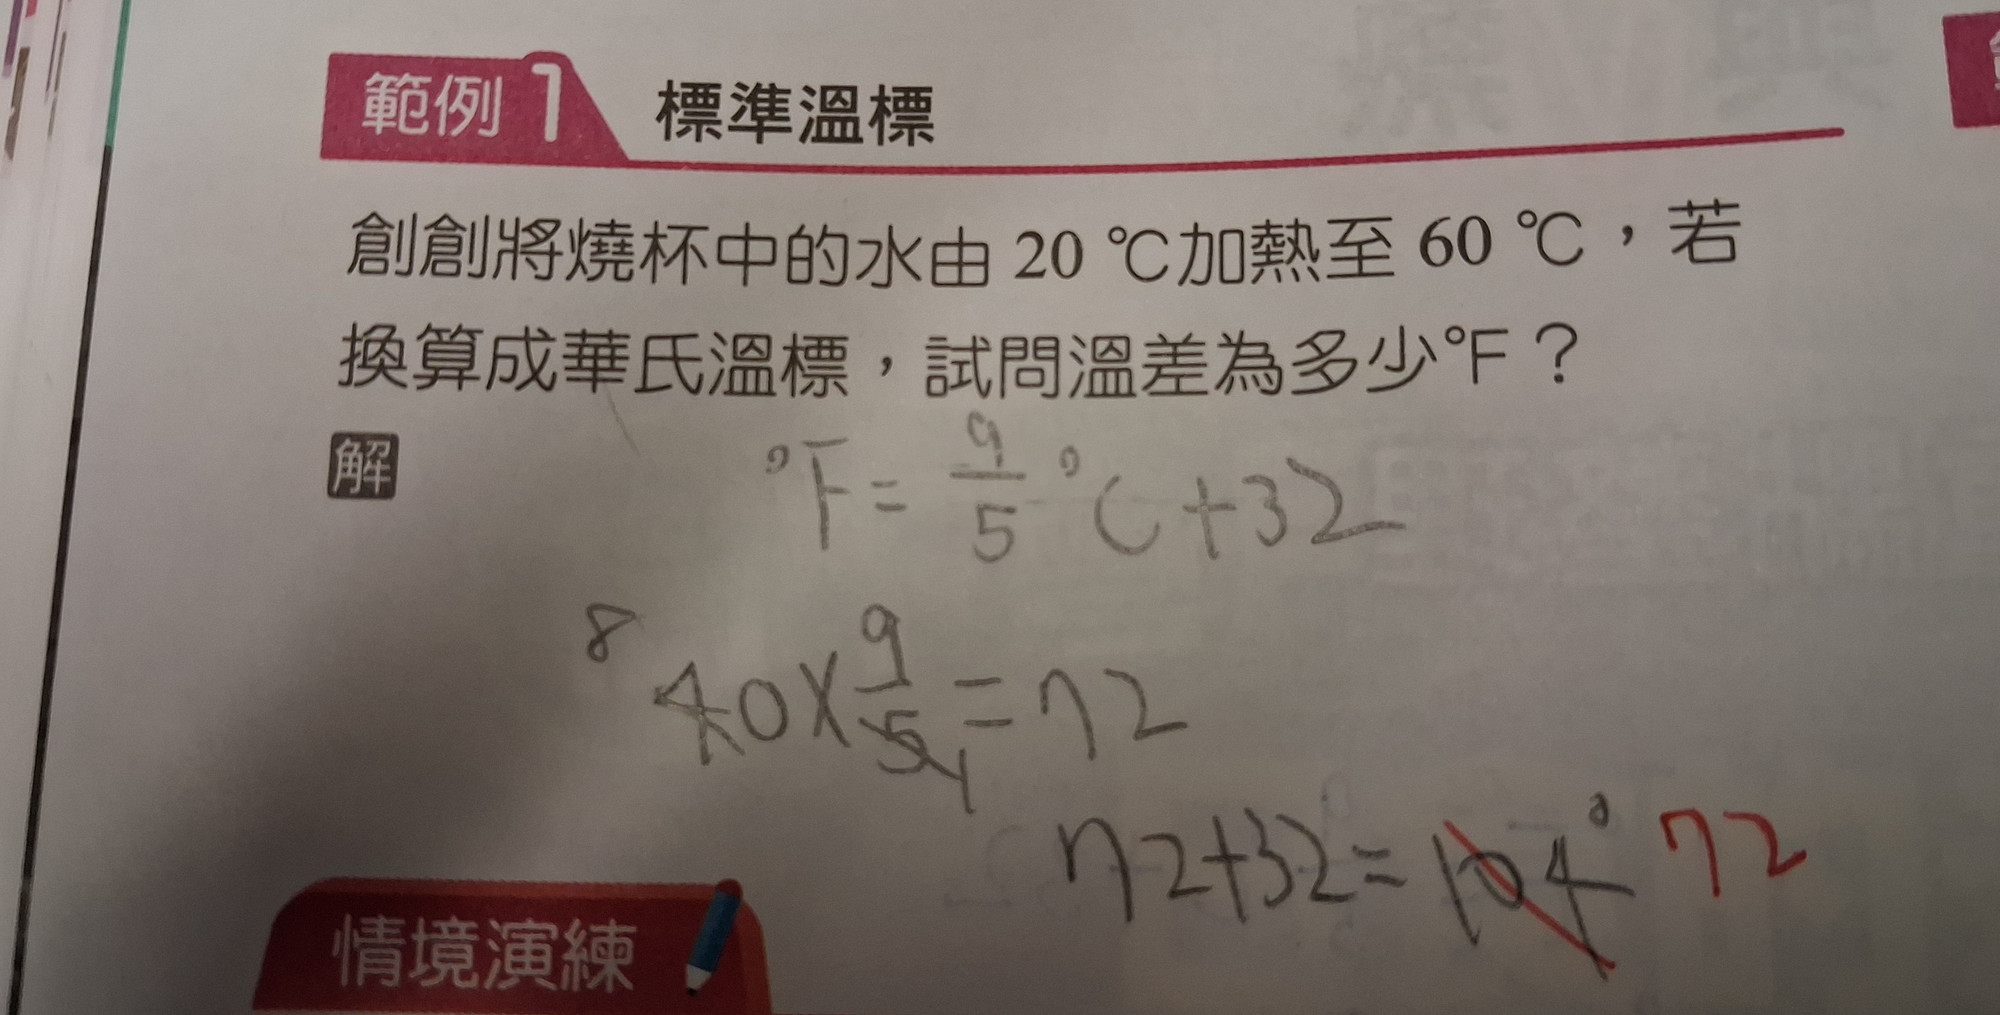 範例1 標準溫標
創創將燒杯中的水由 20 ℃加熱至 60 ℃，若
換算成華氏溫標，試問溫差為多少℉？
解
°F = 9/5 °C + 32
8 40 × 9/5 1 = 72
72+32 = 104° 72
情境演練